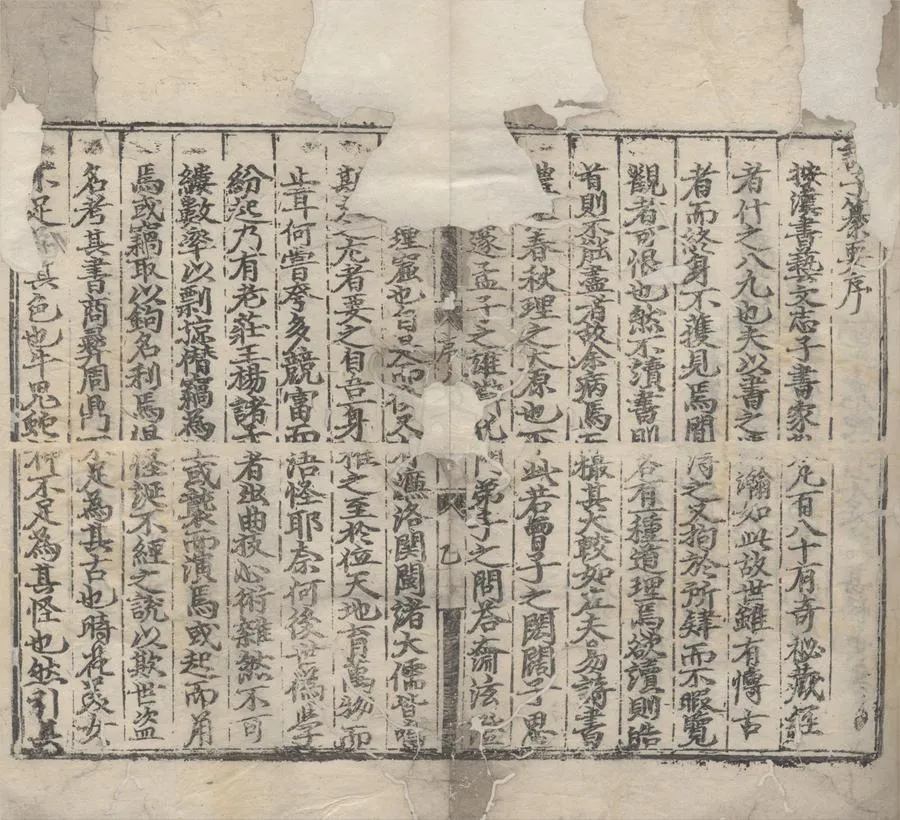 子纂要序
按漢書藝文志子書家凡百八十有奇秘藏經
者什之八九也夫以書之浩瀚如此故世雖有博古
者而終身不獲見焉間得之又拘於所肄而不暇覽
觀者可恨也然不讀書則各有一種道理焉欲讀則皓
首則不能盡者故余病焉撮其大較如左夫易詩書
春秋理之大原也此若曾子之閎闊子思
邃孟子之雄皆門弟子之問答淪泫
序 乙
理窟也自是而又濂洛關閩諸大儒皆
允者要之自吾一身推之至於位天地育萬物而
止耳何嘗夸多競富而語怪耶奈何後世為學
紛起乃有老莊王楊諸者出曲技心術雜然不可
縷數率以剽掠僭竊為或襲而演焉或起而角
焉或竊取以鉤名利焉怪誕不經之說以欺世盜
名考其書商彝周鼎不足為其古也時花美女
不足其色也牛鬼蛇神不足為其怪也然引其